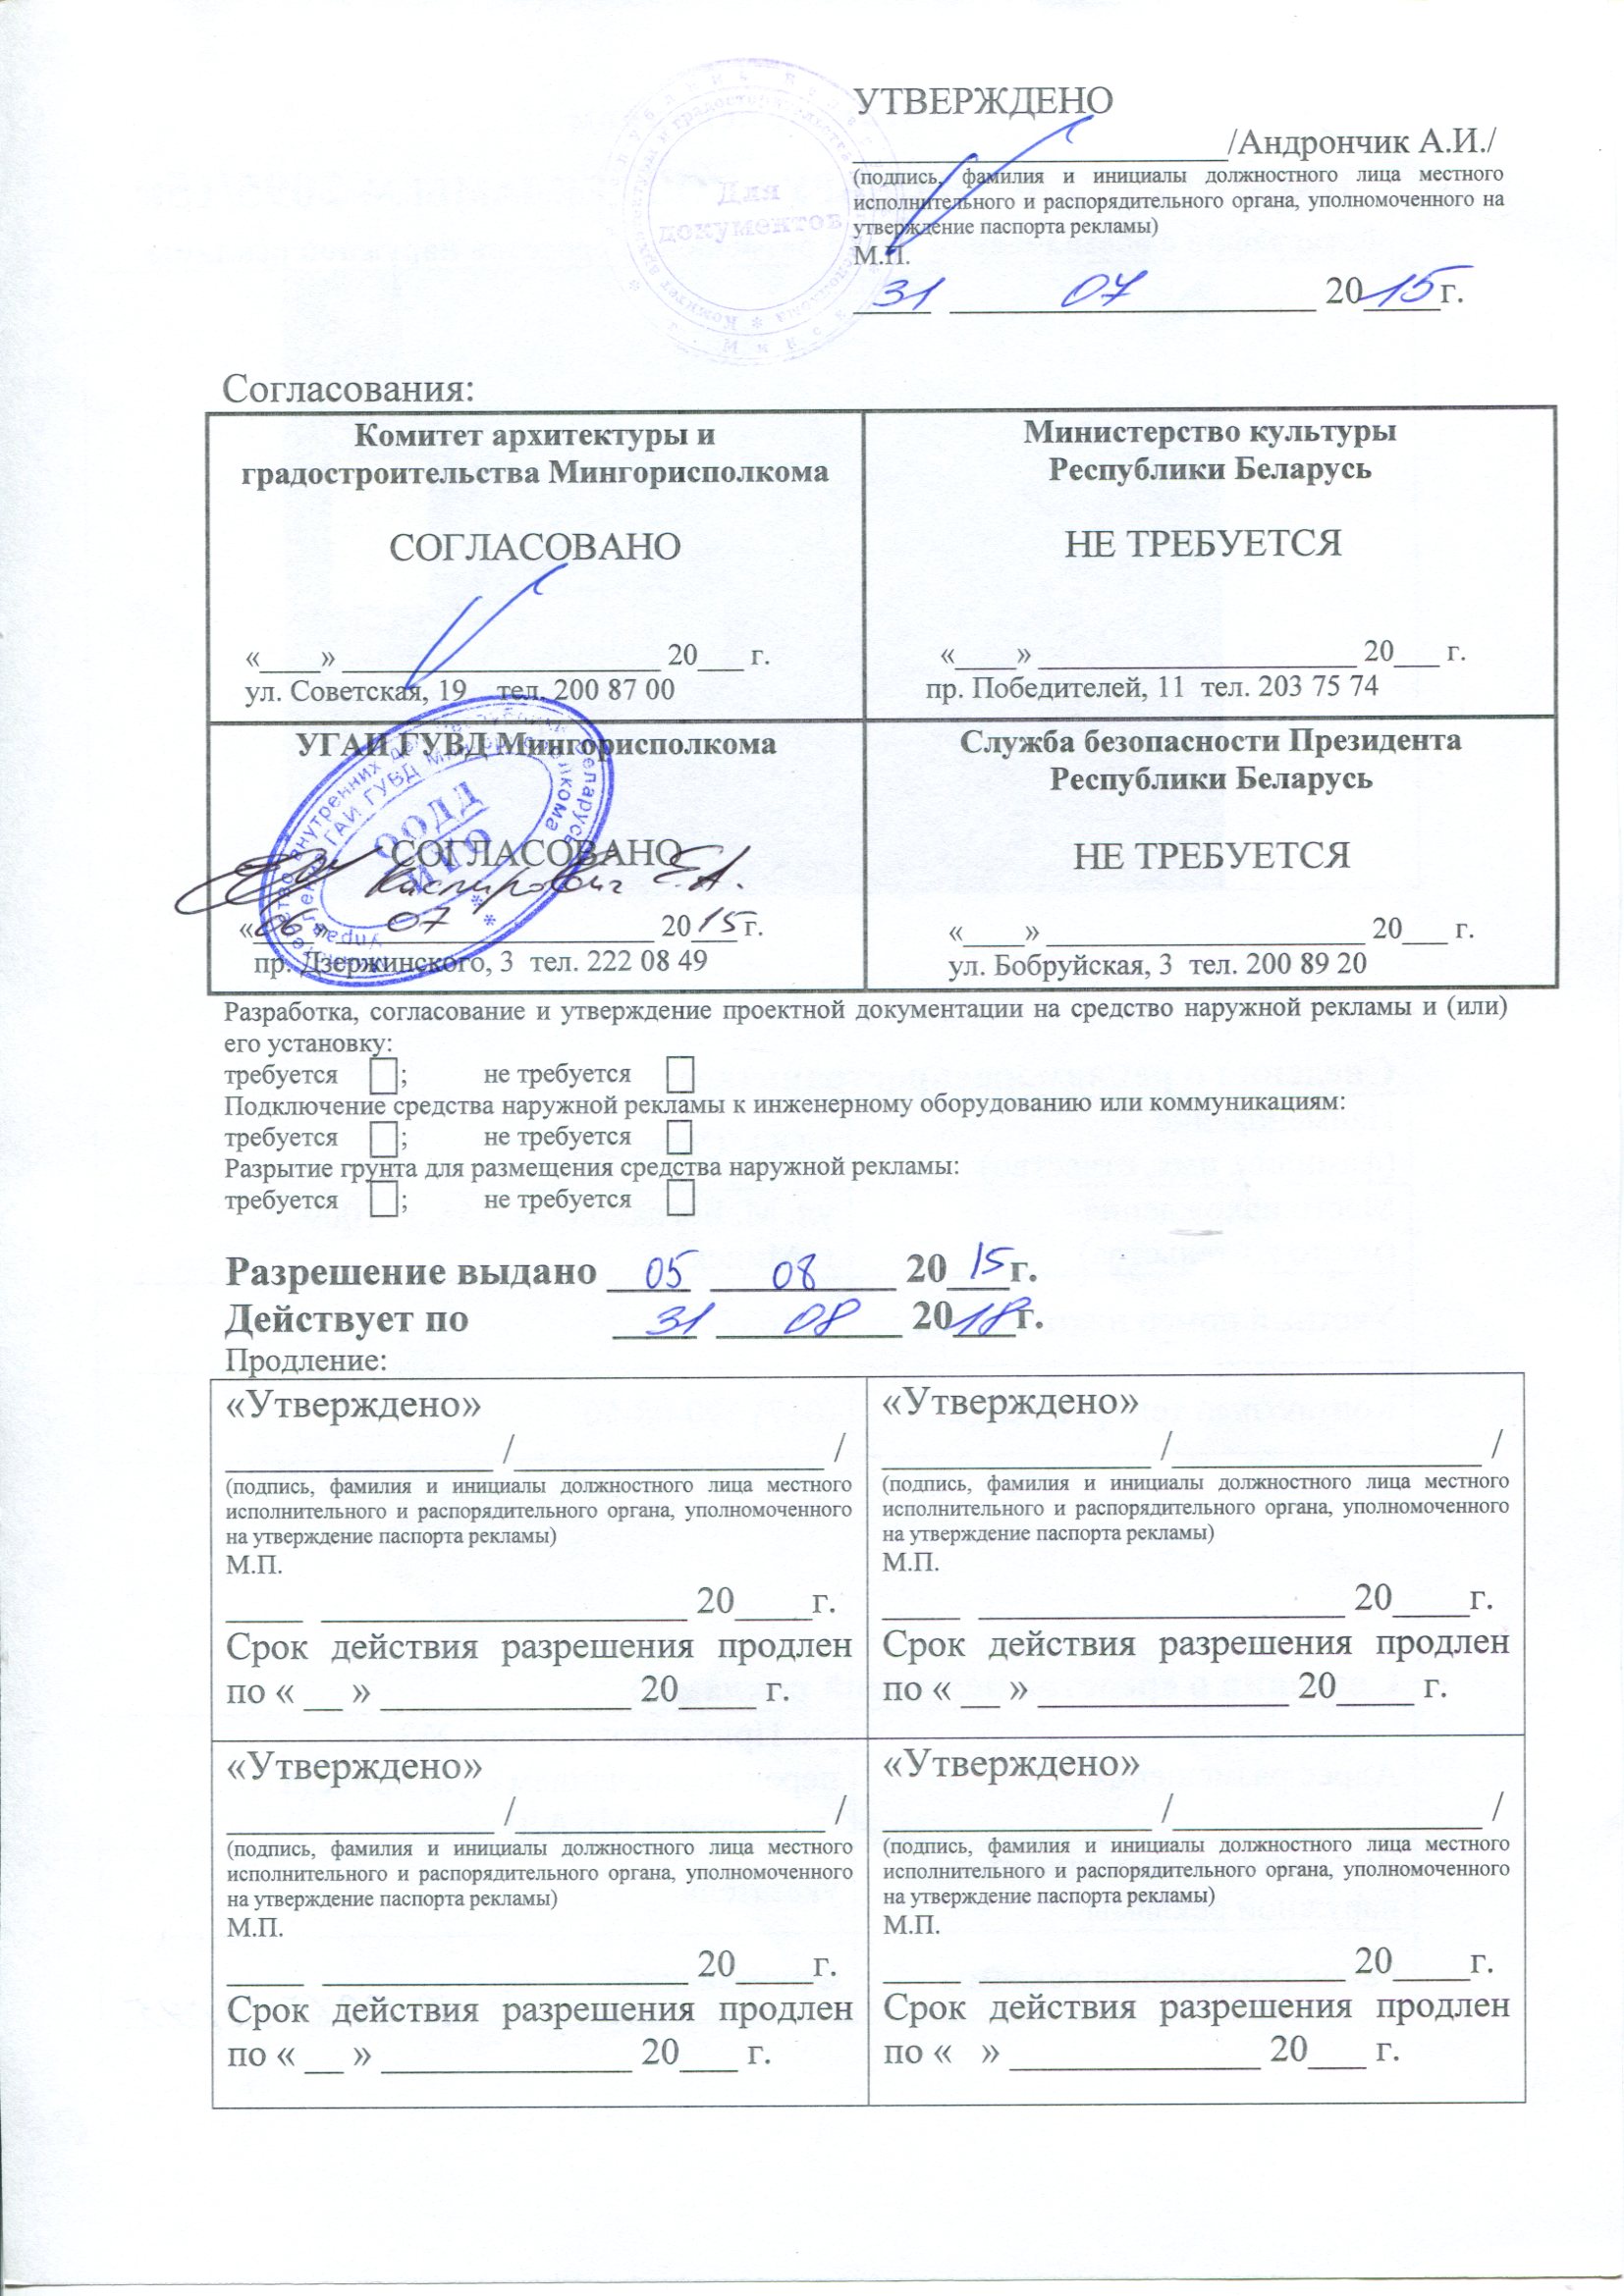 УТВЕРЖДЕНО
____________________/Андрончик А.И./
(подпись, фамилия и инициалы должностного лица местного
исполнительного и распорядительного органа, уполномоченного на
утверждение паспорта рекламы)
М.П.
31 07 2015г.
Для
документов
Согласования:
Комитет архитектуры и
градостроительства Мингорисполкома
СОГЛАСОВАНО
«____» _____________________ 20___ г.
ул. Советская, 19 тел. 200 87 00
Министерство культуры
Республики Беларусь
НЕ ТРЕБУЕТСЯ
«____» _____________________ 20___ г.
пр. Победителей, 11 тел. 203 75 74
УГАИ ГУВД Мингорисполкома
СОГЛАСОВАНО
Е.А.
«06» 07 2015 г.
пр. Дзержинского, 3 тел. 222 08 49
ООДД
Служба безопасности Президента
Республики Беларусь
НЕ ТРЕБУЕТСЯ
«____» _____________________ 20___ г.
ул. Бобруйская, 3 тел. 200 89 20
Разработка, согласование и утверждение проектной документации на средство наружной рекламы и (или)
его установку:
требуется ; не требуется
Подключение средства наружной рекламы к инженерному оборудованию или коммуникациям:
требуется ; не требуется
Разрытие грунта для размещения средства наружной рекламы:
требуется ; не требуется
Разрешение выдано 05 08 2015г.
Действует по 31 08 2018г.
Продление:
«Утверждено»
______________ /________________ /
(подпись, фамилия и инициалы должностного лица местного
исполнительного и распорядительного органа, уполномоченного
на утверждение паспорта рекламы)
М.П.
____ ___________________ 20____г.
Срок действия разрешения продлен
по « __ » _____________ 20____ г.
«Утверждено»
______________ /________________ /
(подпись, фамилия и инициалы должностного лица местного
исполнительного и распорядительного органа, уполномоченного
на утверждение паспорта рекламы)
М.П.
____ ___________________ 20____г.
Срок действия разрешения продлен
по « __ » _____________ 20____ г.
«Утверждено»
______________ /________________ /
(подпись, фамилия и инициалы должностного лица местного
исполнительного и распорядительного органа, уполномоченного
на утверждение паспорта рекламы)
М.П.
____ ___________________ 20____г.
Срок действия разрешения продлен
по « __ » _____________ 20___ г.
«Утверждено»
______________ /________________ /
(подпись, фамилия и инициалы должностного лица местного
исполнительного и распорядительного органа, уполномоченного
на утверждение паспорта рекламы)
М.П.
____ ___________________ 20____г.
Срок действия разрешения продлен
по « » _____________ 20___ г.